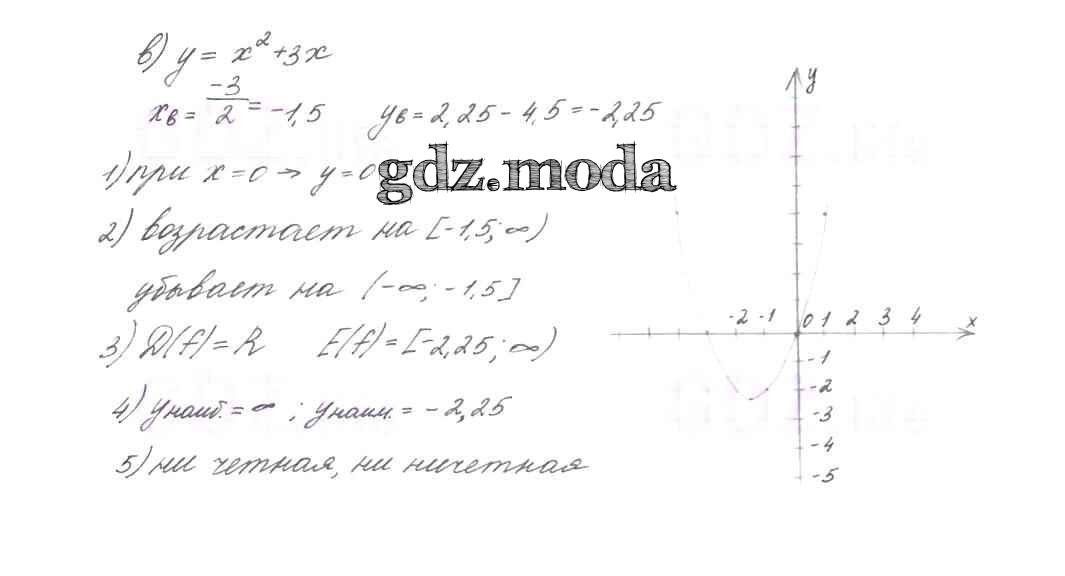 в) y = x² + 3x
xв = -3/2 = -1,5 yв = 2,25 - 4,5 = -2,25
1) при x = 0 → y = 0
gdz.moda
2) возрастает на [-1,5; ∞)
убывает на (-∞; -1,5]
3) D(f) = R E(f) = [-2,25; ∞)
4) yнаиб. = ∞ ; yнаим. = -2,25
5) ни четная, ни ничетная
y
-2 -1 0 1 2 3 4 x
-1
-2
-3
-4
-5